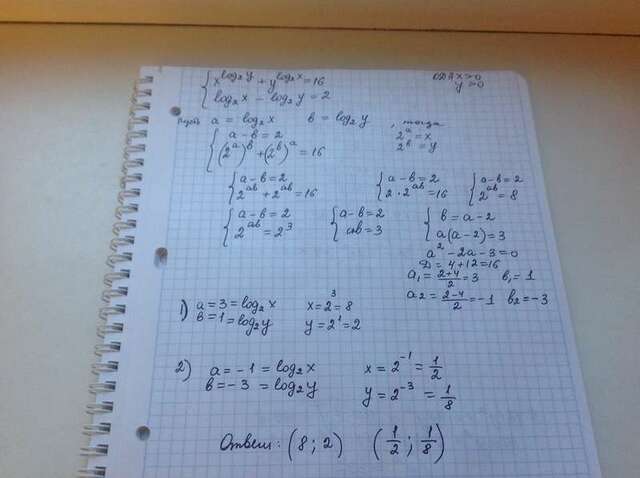 { x^log₂y + y^log₂x = 16 ОДЗ x>0
{ log₂x − log₂y = 2 y>0
пусть a = log₂x b = log₂y , тогда
{ a − b = 2 2^a = x
{ (2^a)^b + (2^b)^a = 16 2^b = y
{ a − b = 2 { a − b = 2 { a − b = 2
{ 2^ab + 2^ab = 16 { 2 · 2^ab = 16 { 2^ab = 8
{ a − b = 2 { a − b = 2 { b = a − 2
{ 2^ab = 2³ { ab = 3 { a(a − 2) = 3
a² − 2a − 3 = 0
D = 4 + 12 = 16
a₁ = (2+4)/2 = 3 b₁ = 1
a₂ = (2−4)/2 = −1 b₂ = −3
1) a = 3 = log₂x x = 2³ = 8
b = 1 = log₂y y = 2¹ = 2
2) a = −1 = log₂x x = 2⁻¹ = 1/2
b = −3 = log₂y y = 2⁻³ = 1/8
Ответ: (8 ; 2) (1/2 ; 1/8)